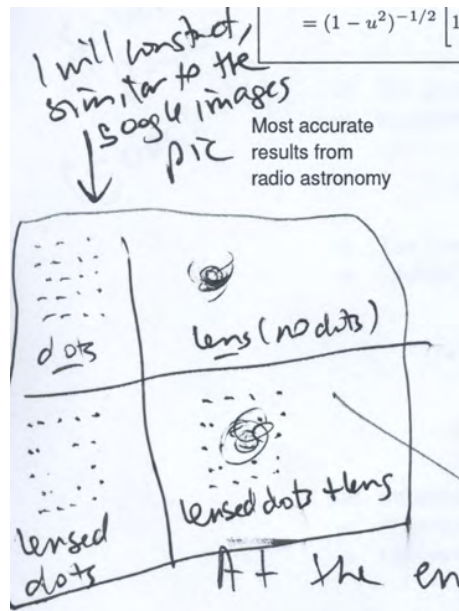 = (1 − u²)^{−1/2} [1
I will construct,
similar to the
google images
pic
Most accurate
results from
radio astronomy
dots
lens (no dots)
lensed
dots
lensed dots + lens
At the en